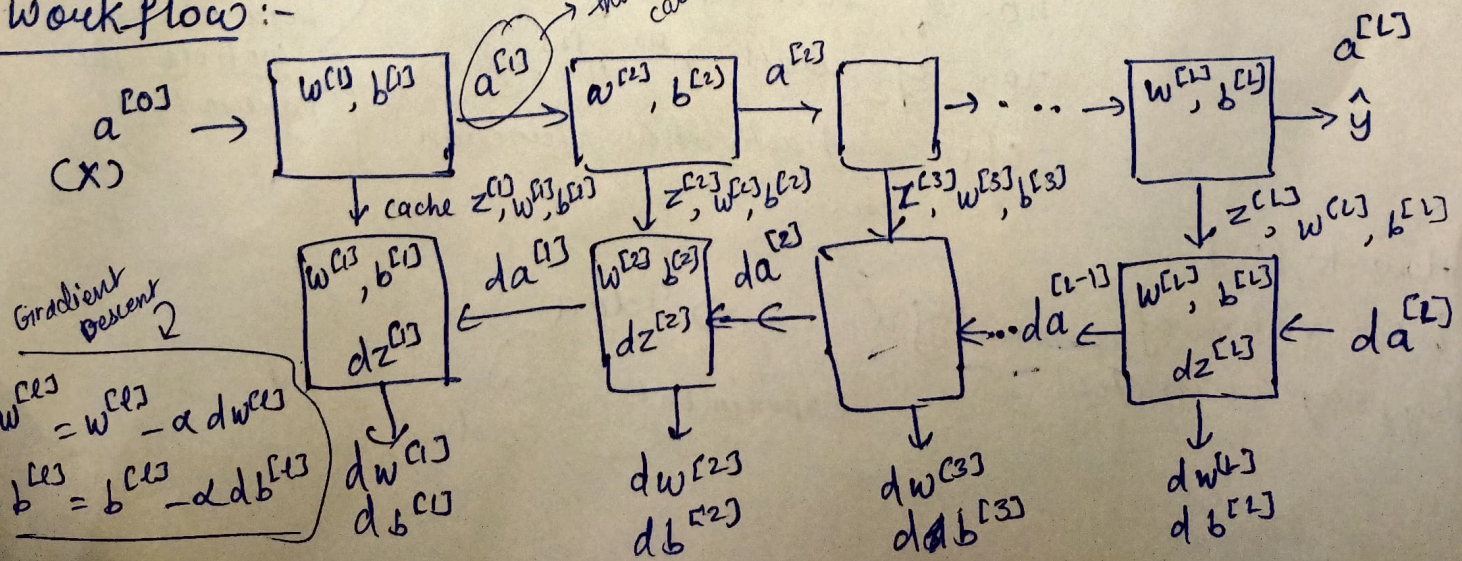 Workflow :-
a[0]
(X)
w[1], b[1]
a[1]
w[2], b[2]
a[2]
w[L], b[L]
a[L]
ŷ
cache z[1], w[1], b[1]
z[2], w[2], b[2]
z[3], w[3], b[3]
z[L], w[L], b[L]
w[1], b[1]
dz[1]
da[1]
w[2] b[2]
dz[2]
da[2]
da[L-1]
w[L], b[L]
dz[L]
da[L]
Gradient
Descent
w[l] = w[l] - α dw[l]
b[l] = b[l] - α db[l]
dw[1]
db[1]
dw[2]
db[2]
dw[3]
db[3]
dw[L]
db[L]